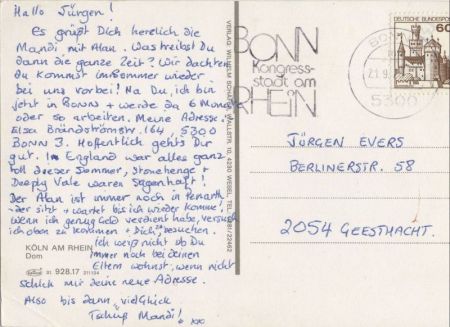 Hallo Jürgen!
Es grüßt Dich herzlich die
Mandi mit Alan. Was treibst Du
denn die ganze Zeit? Wir dachten
du kommst im Sommer wieder
bei uns vorbei! Na Du, ich bin
jetzt in Bonn + werde da 6 Monate
oder so arbeiten. Meine Adresse:
Elsa Brändströmstr. 164, 5300
Bonn 3. Hoffentlich geht's Dir
gut. In England war alles ganz
toll dieser Sommer, Stonehenge +
Deeply Vale waren sagenhaft!
Der Alan ist immer noch in Penarth
- der sitzt + wartet bis ich wieder komme!
Wenn ich genug Geld verdient habe, versuch
ich oben zu kommen + Dich besuchen.
Ich weiß nicht ob Du
immer noch bei deinen
Eltern wohnst, wenn nicht
schick mir deine neue Adresse.
Also bis dann, viel Glück
Tschüß Mandi! xxx
KÖLN AM RHEIN
Dom
21 928.17
VERLAG WILHELM
10, 4230 WESEL, TEL.
BONN
Kongress-
stadt am
RHEIN
5300
21.9.
DEUTSCHE BUNDESPOST
60
JÜRGEN EVERS
BERLINERSTR. 58
2054 GEESTHACHT.